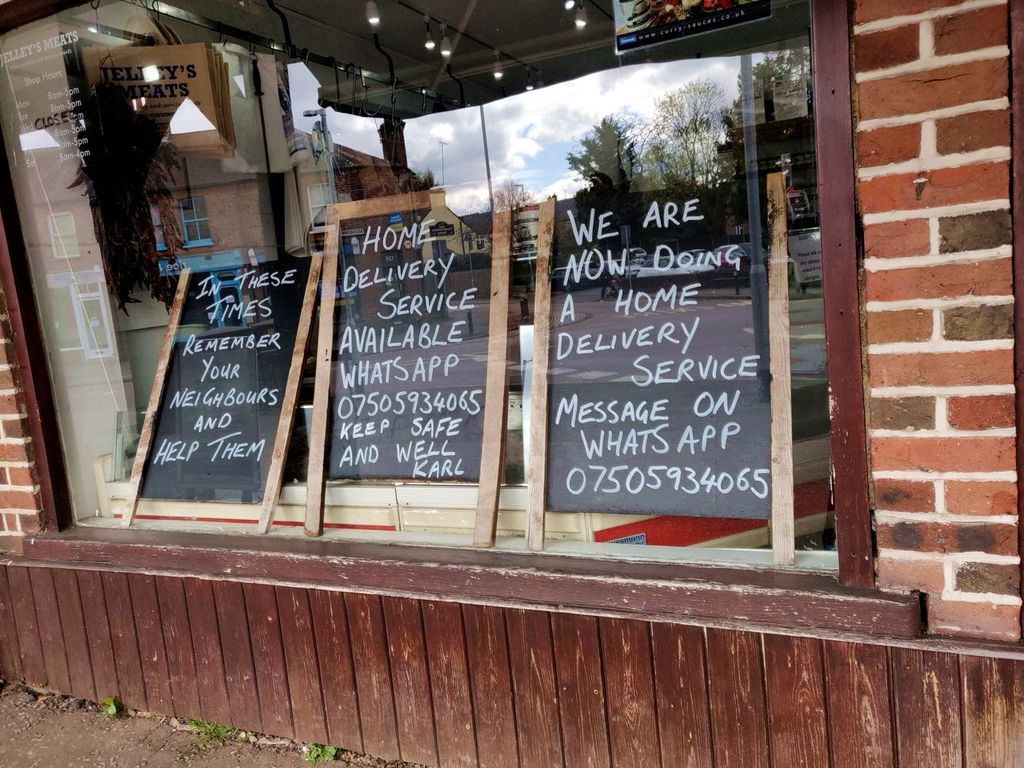 JELLEY'S MEATS
Shop Hours
Mon 8am-5pm
CLOSED
8am-5pm
8am-5pm
8am-5pm
Sat 8am-4pm
JELLEY'S
MEATS
www.currysauces.co.uk
IN THESE
TIMES
REMEMBER
YOUR
NEIGHBOURS
AND
HELP THEM
HOME
DELIVERY
SERVICE
AVAILABLE
WHATSAPP
07505934065
KEEP SAFE
AND WELL
KARL
WE ARE
NOW DOING
A HOME
DELIVERY
SERVICE
MESSAGE ON
WHATS APP
07505934065